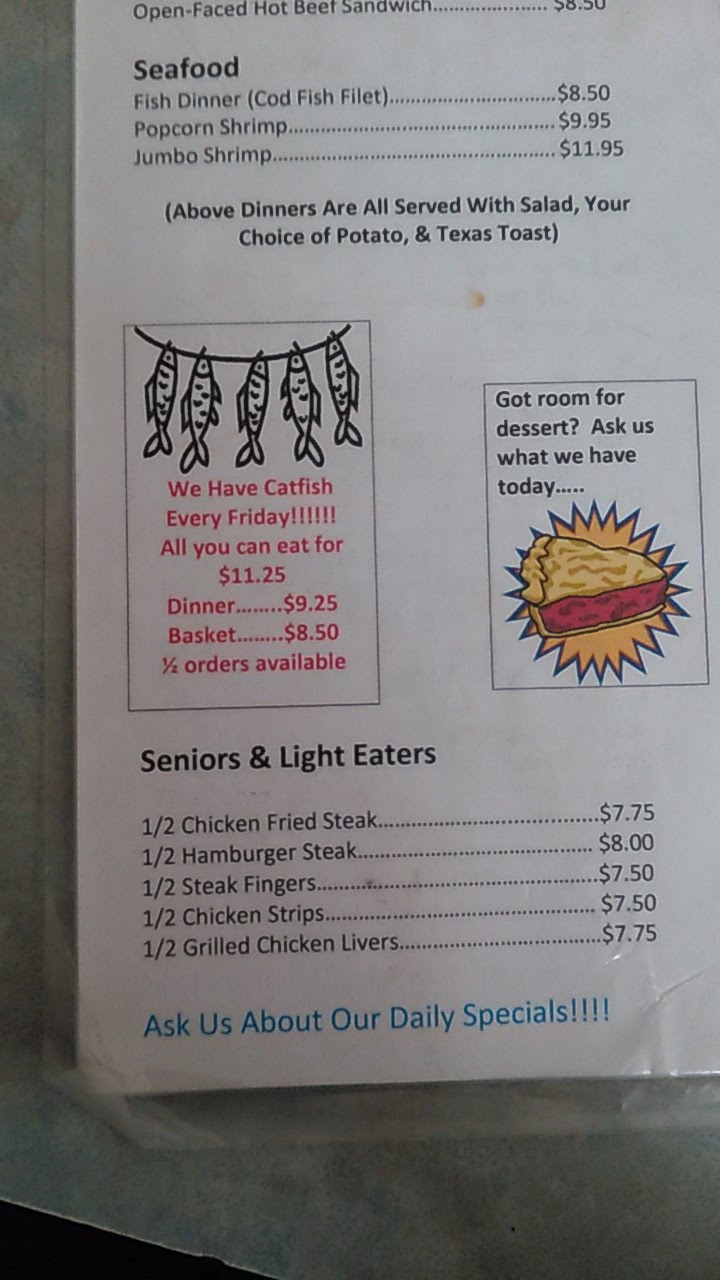 Open-Faced Hot Beef Sandwich..................... $8.50
Seafood
Fish Dinner (Cod Fish Filet)..............................$8.50
Popcorn Shrimp................................................ $9.95
Jumbo Shrimp................................................... $11.95
(Above Dinners Are All Served With Salad, Your
Choice of Potato, & Texas Toast)
We Have Catfish
Every Friday!!!!!!
All you can eat for
$11.25
Dinner........$9.25
Basket........$8.50
½ orders available
Got room for
dessert? Ask us
what we have
today.....
Seniors & Light Eaters
1/2 Chicken Fried Steak......................................$7.75
1/2 Hamburger Steak........................................ $8.00
1/2 Steak Fingers................................................$7.50
1/2 Chicken Strips.............................................. $7.50
1/2 Grilled Chicken Livers...................................$7.75
Ask Us About Our Daily Specials!!!!